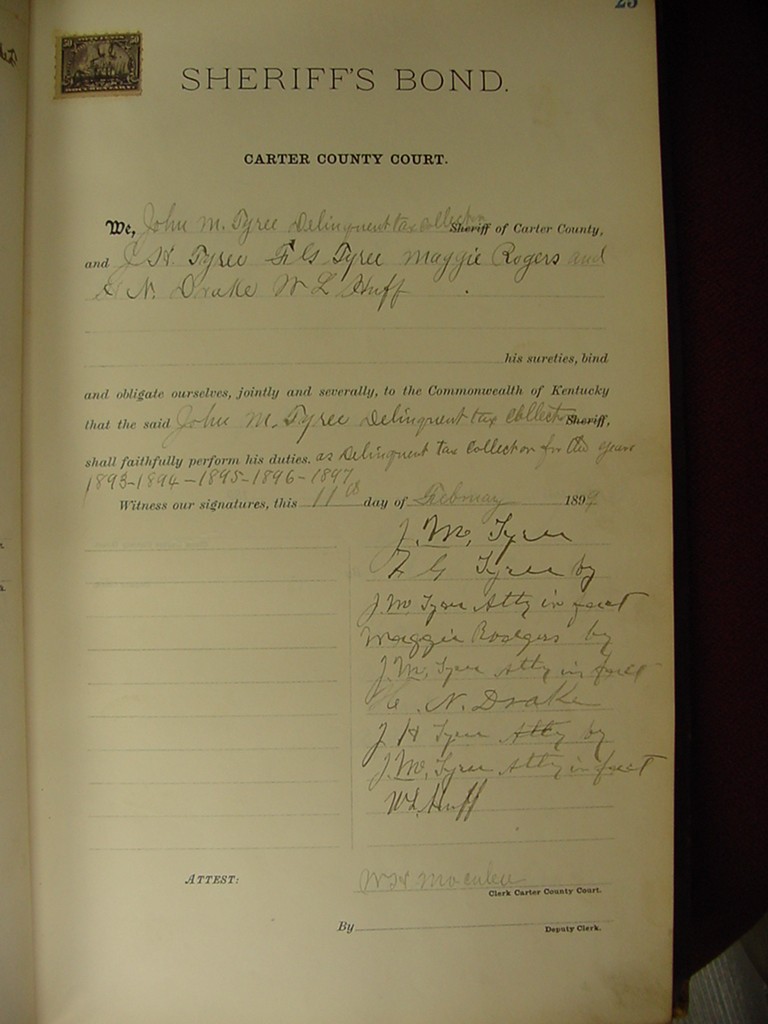 25
50 50
SHERIFF'S BOND.
CARTER COUNTY COURT.
We, John M. Tyree Delinquent tax collector Sheriff of Carter County,
and J H Tyree F G Tyree Maggie Rogers and
N. Drake W L Huff
his sureties, bind
and obligate ourselves, jointly and severally, to the Commonwealth of Kentucky
that the said John M. Tyree Delinquent tax Collector Sheriff,
shall faithfully perform his duties. as Delinquent tax Collector for the years
1893-1894-1895-1896-1897
Witness our signatures, this 11th day of February 1899
J. M. Tyree
F G Tyree by
J. M Tyree Atty in fact
Maggie Rodgers by
J. M. Tyree Atty in fact
N. Drake
J H Tyree Atty by
J. M. Tyree Atty in fact
W L Huff
ATTEST:
Clerk Carter County Court.
By
Deputy Clerk.